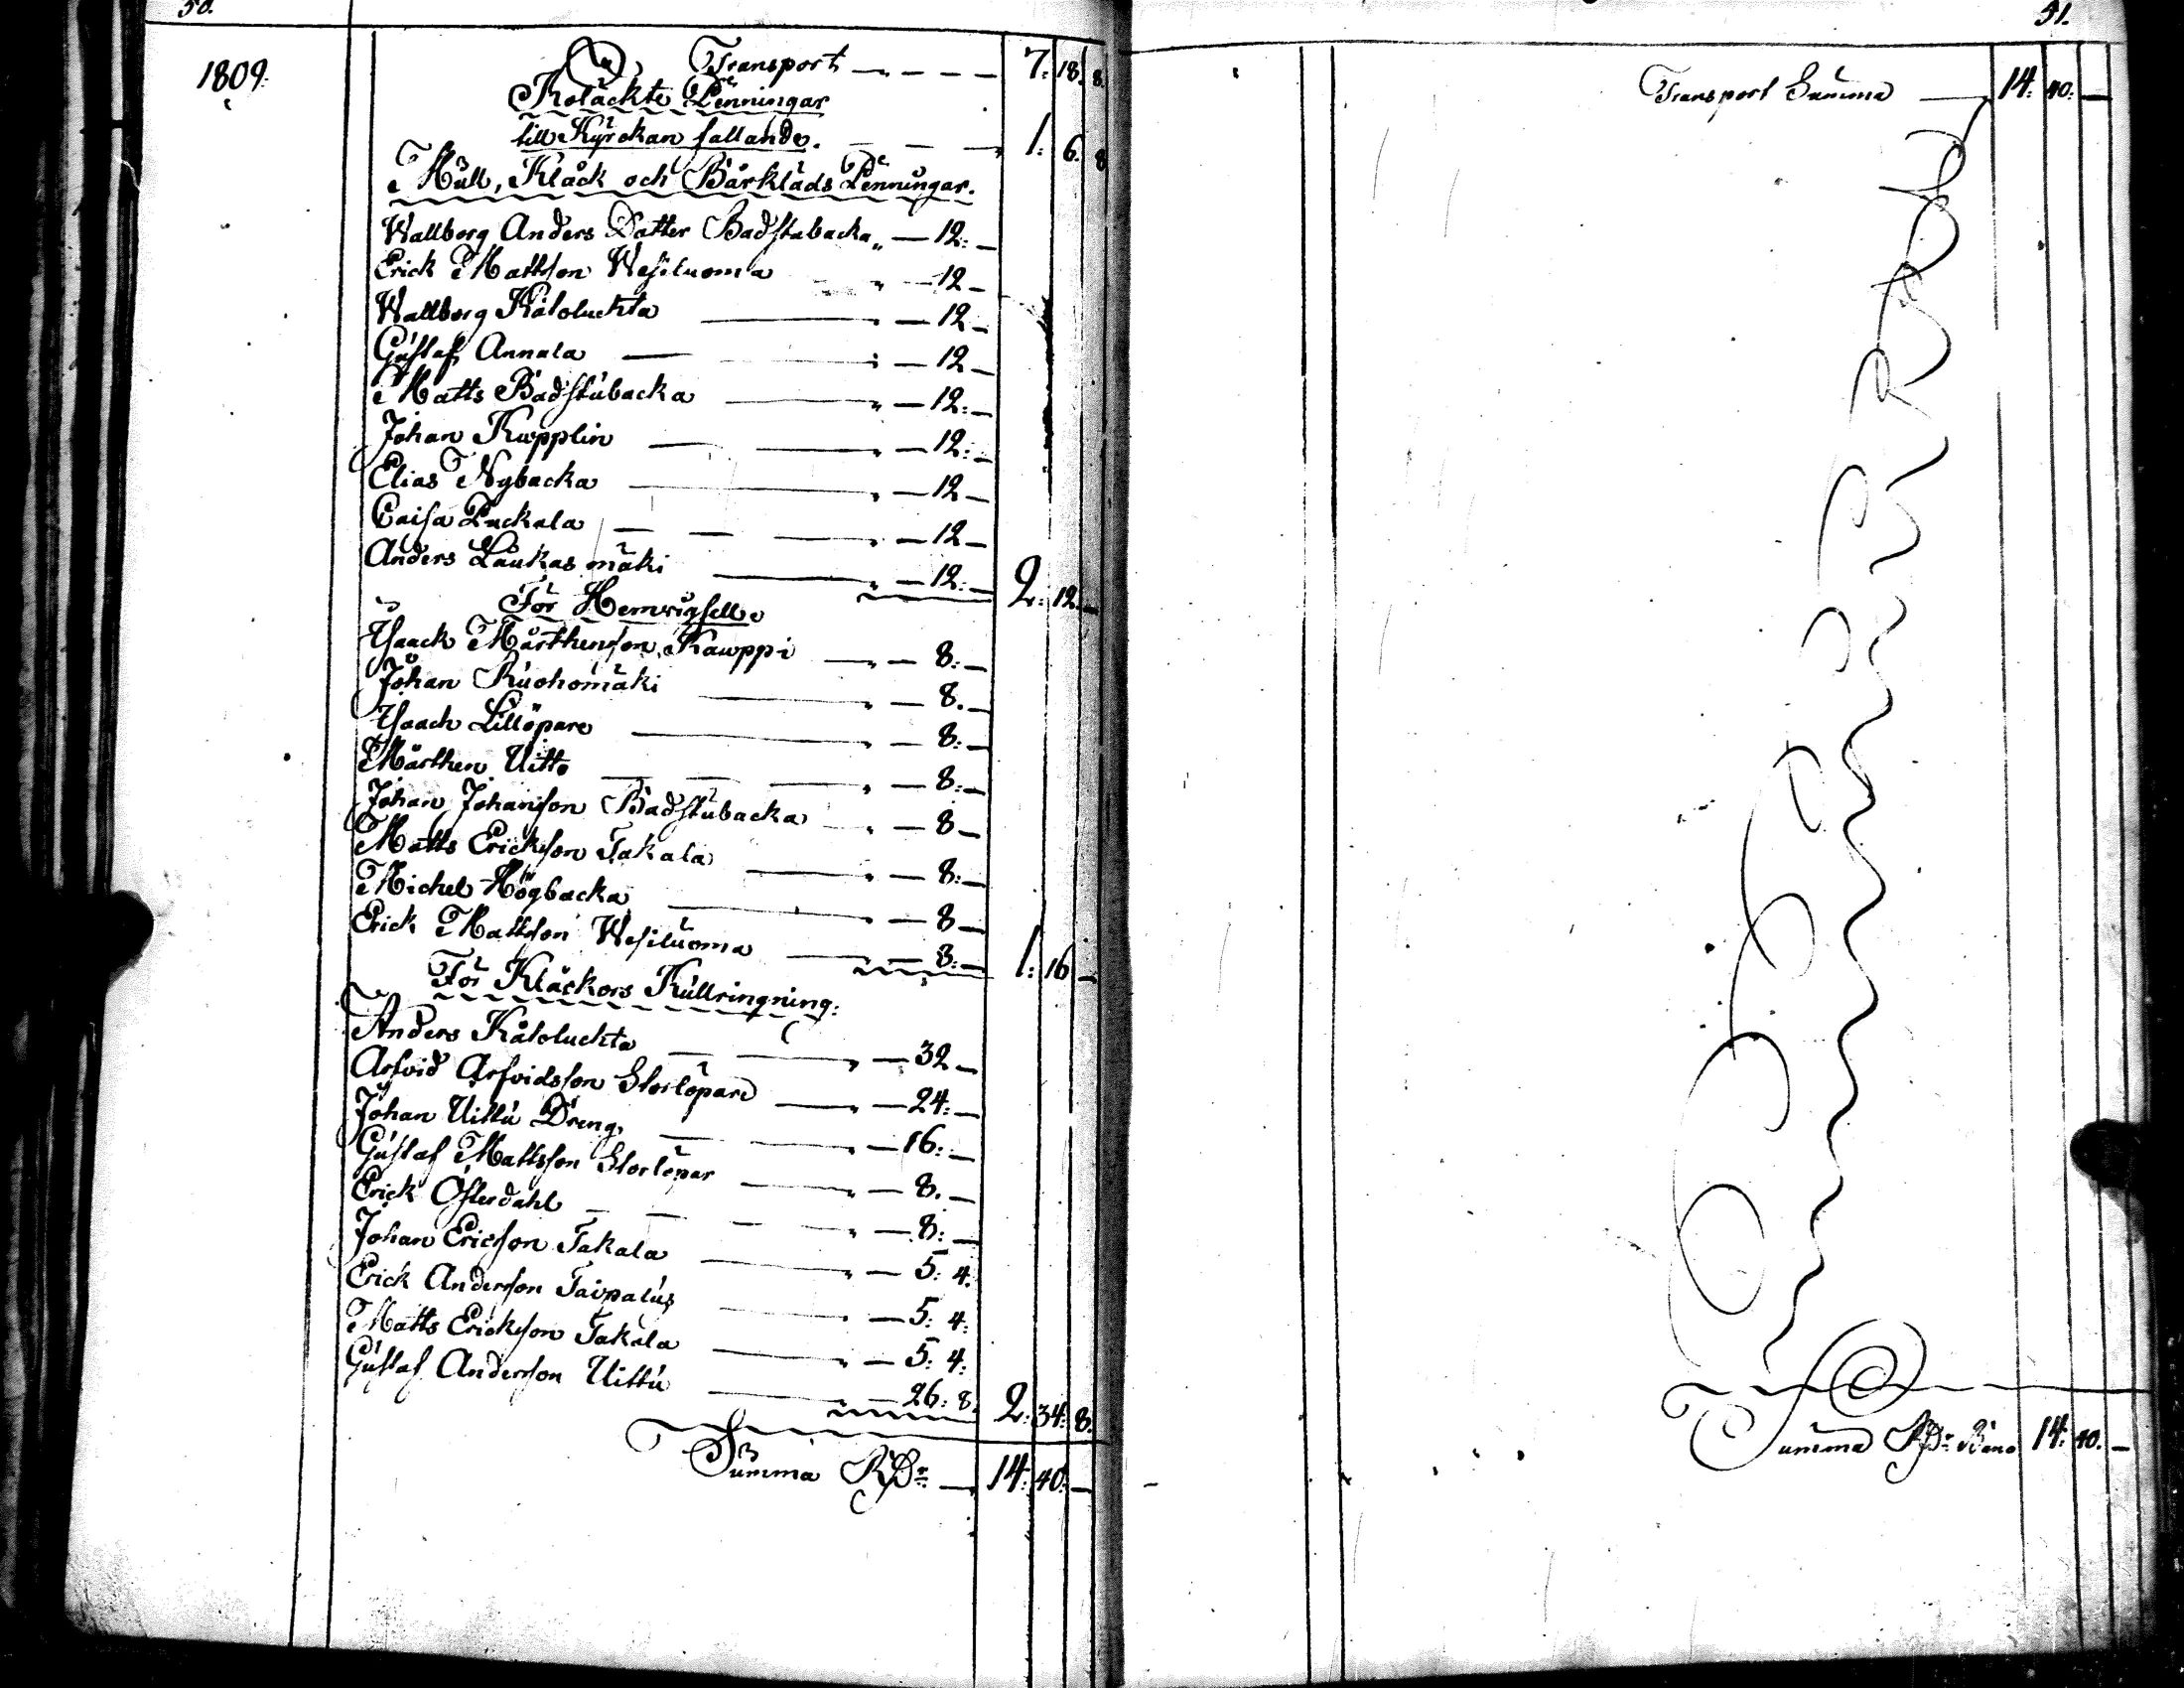 50.
1809.
Transport 7: 18. 8.
Koläckte Penningar
till Kyrckan fallande. 1: 6. 8
Mull, Klåck och Bårkläds Penningar.
Wallborg Anders Datter Badstubacka „ — 12: —
Erick Mattsson Wesiluoma „ — 12 —
Wallborg Kåtoluckta „ — 12 —
Gustaf Annala „ — 12 —
Matts Badstubacka „ — 12: —
Johan Kupplin „ — 12: —
Elias Nybacka „ — 12 —
Caisa Luckala „ — 12 —
Anders Laukasmäki „ — 12: — 2: 12. —
För Hemvigsell.
Isaack Mårthensson Kauppi „ — 8: —
Johan Ruohomäki „ — 8. —
Isaack Lillöpare „ — 8: —
Mårthen Uitto „ — 8: —
Johan Johansson Badstubacka „ — 8 —
Matts Ericksson Takala „ — 8: —
Michel Högbacka „ — 8 —
Erick Mattsson Wesiluoma — 8: — 1: 16 —
För Klåckors Kullringning:
Anders Kåtoluckta „ — 32 —
Arfvid Arfvidsson Storlöpare „ — 24: —
Johan Uittu Dreng. — 16: —
Gustaf Mattsson Storlöpar „ — 8. —
Erick Österdahl „ — 8: —
Johan Ericsson Takala „ — 5: 4.
Erick Andersson Taipalus — 5: 4:
Matts Ericksson Takala „ — 5: 4:
Gustaf Andersson Uittu — 26: 8. 2: 34: 8.
Summa RDr — 14: 40: —
51.
Transport Summa — 14: 40: —
Summa RDr Banco 14: 40. —